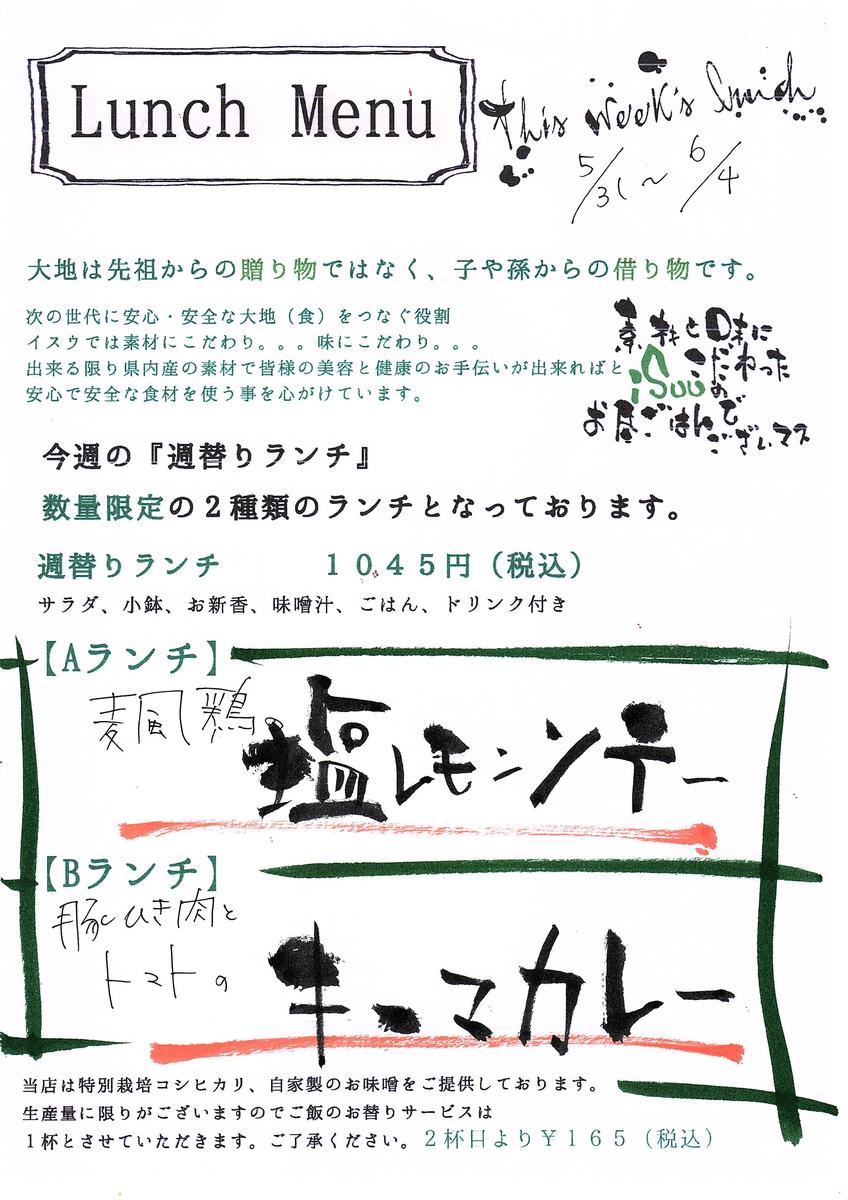 Lunch Menu
This week's lunch
5/31～6/4
大地は先祖からの贈り物ではなく、子や孫からの借り物です。
次の世代に安心・安全な大地（食）をつなぐ役割
イスウでは素材にこだわり。。。味にこだわり。。。
出来る限り県内産の素材で皆様の美容と健康のお手伝いが出来ればと
安心で安全な食材を使う事を心がけています。
素材と味に
こだわった
iSouの
お昼ごはんで
ございマス
今週の『週替りランチ』
数量限定の２種類のランチとなっております。
週替りランチ　１０４５円（税込）
サラダ、小鉢、お新香、味噌汁、ごはん、ドリンク付き
【Aランチ】
麦風鶏の
塩レモンソテー
【Bランチ】
豚ひき肉と
トマトの
キーマカレー
当店は特別栽培コシヒカリ、自家製のお味噌をご提供しております。
生産量に限りがございますのでご飯のお替りサービスは
１杯とさせていただきます。ご了承ください。２杯目より￥１６５（税込）